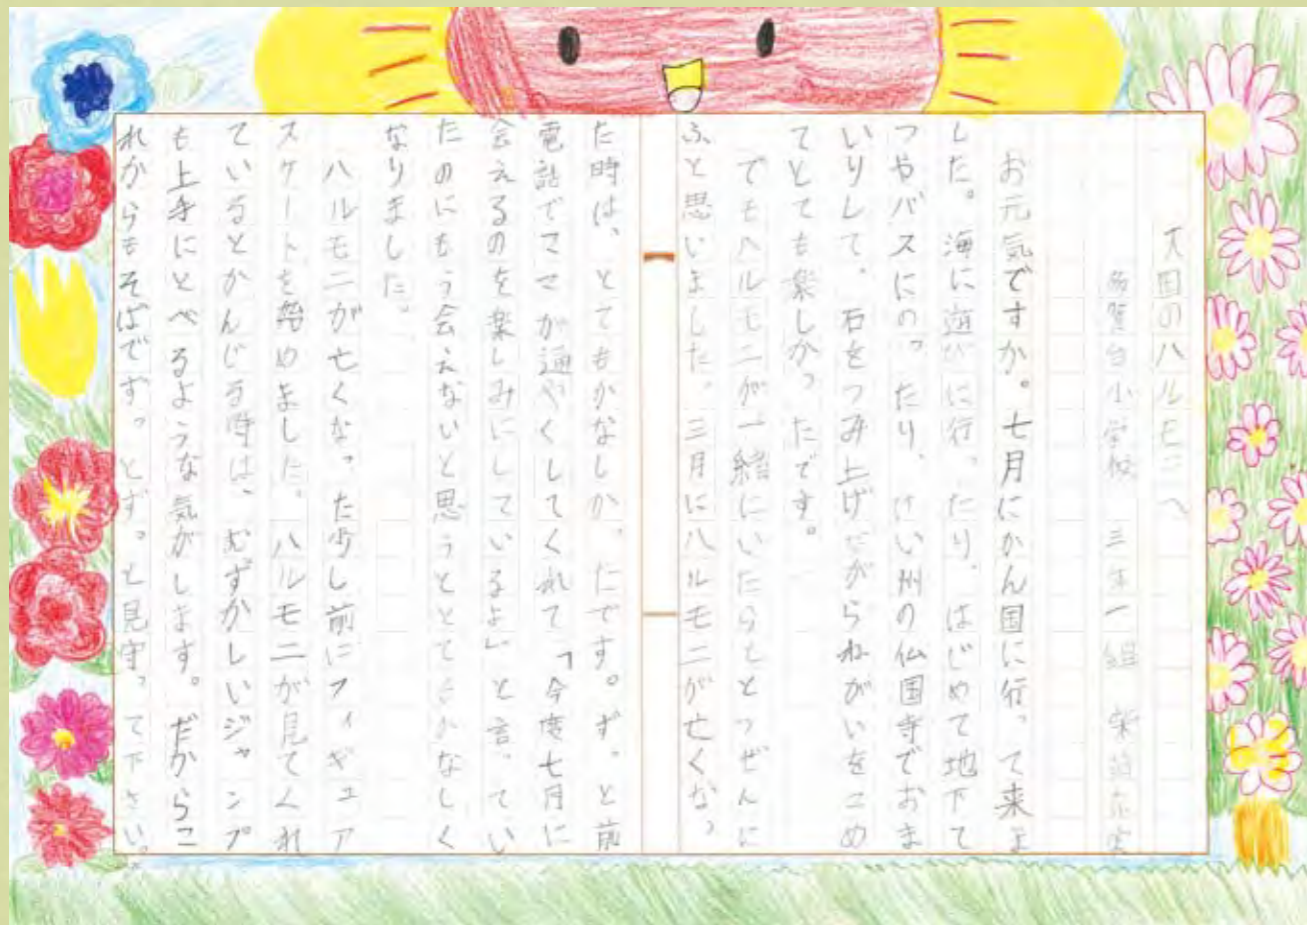 天国のハルモニへ
多賀台小学校 三年一組
お元気ですか。七月にかん国に行って来ま
した。海に遊びに行ったり、はじめて地下て
つやバスにのったり、けい州の仏国寺でおま
いりして、石をつみ上げながらねがいをこめ
てとても楽しかったです。
でもハルモニが一緒にいたらもととつぜんに
ふと思いました。三月にハルモニが亡くなっ
た時は、とてもかなしかったです。ずっと前
電話でママが通やくしてくれて「今度七月に
会えるのを楽しみにしているよ」と言ってい
たのにもう会えないと思うととてもかなしく
なりました。
ハルモニが亡くなった少し前にフィギュア
スケートを始めました。ハルモニが見てくれ
ているとかんじる時は、むずかしいジャンプ
も上手にとべるような気がします。だからこ
れからもそばでずっとずっと見守って下さい。